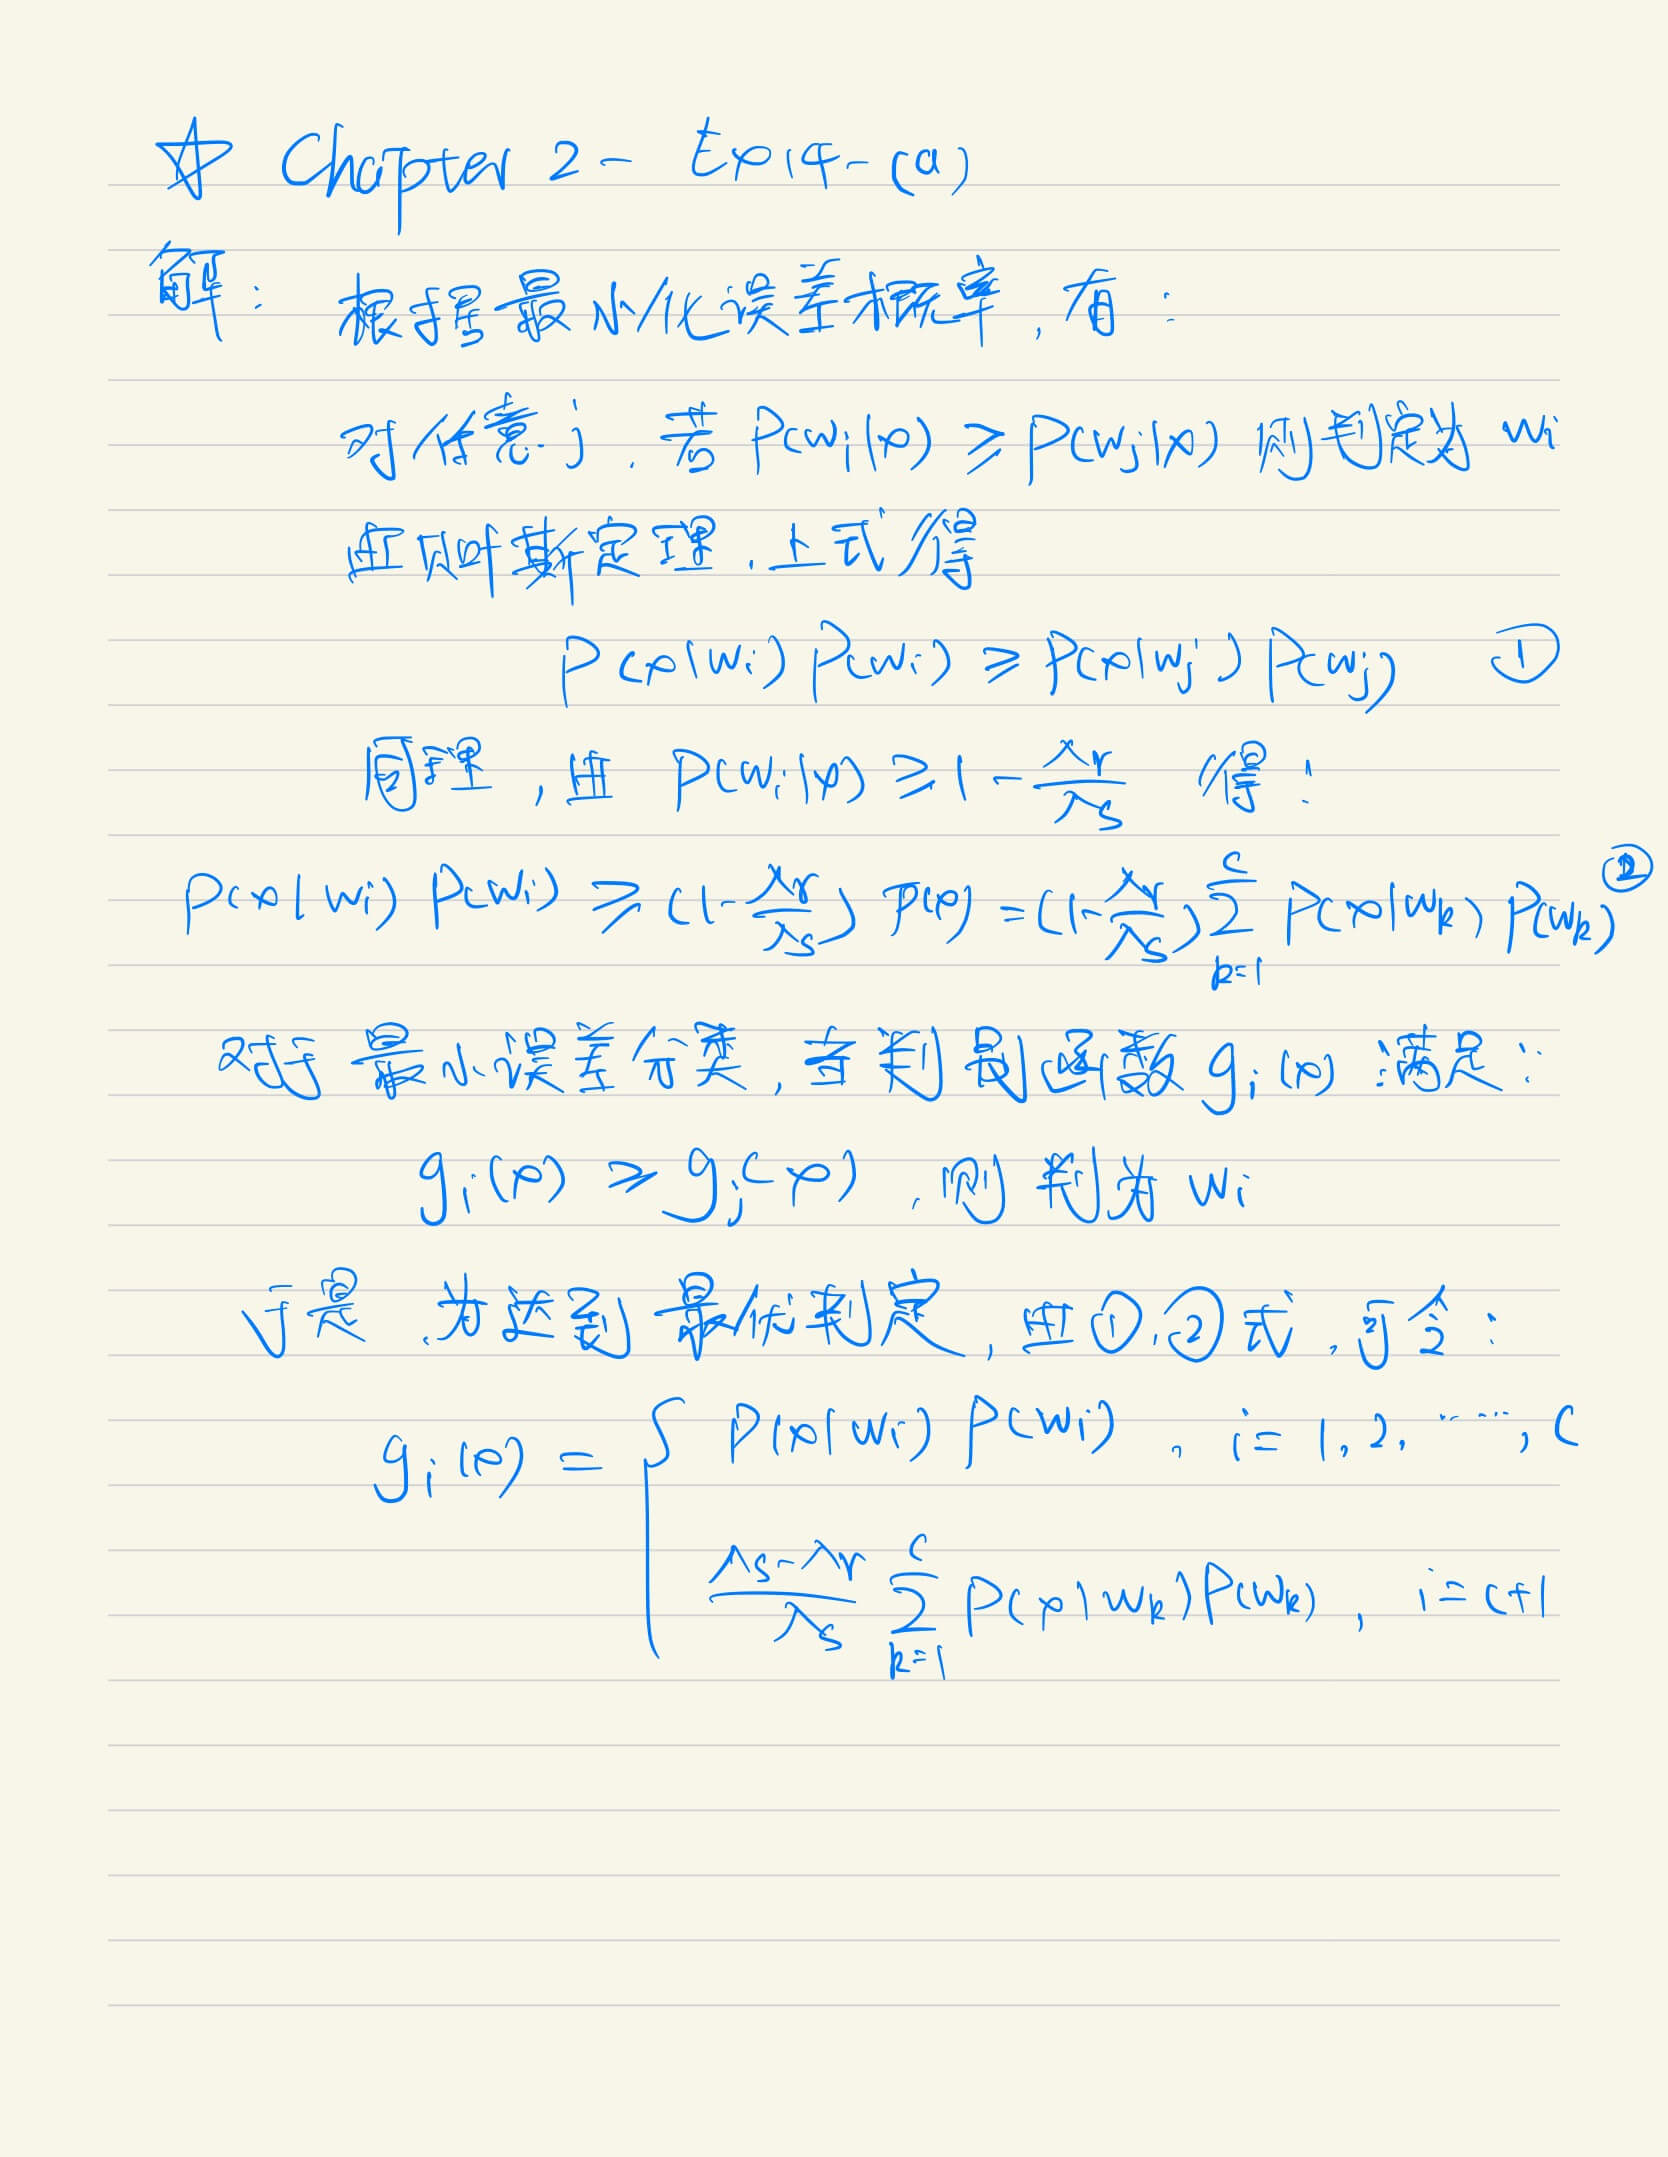 ☆ Chapter 2 - Ex14-(a)
解: 根据最小化误差概率, 有:
对任意 j, 若 P(wi|x) ≥ P(wj|x) 则判定为 wi
由贝叶斯定理, 上式得
P(x|wi) P(wi) ≥ P(x|wj) P(wj) ①
同理, 由 P(wi|x) ≥ 1 - λr/λs 得:
P(x|wi) P(wi) ≥ (1 - λr/λs) P(x) = (1 - λr/λs) ∑_{k=1}^{c} P(x|wk) P(wk) ②
对于最小误差分类, 有判别函数 gi(x) 满足:
gi(x) ≥ gj(x), 则判为 wi
于是, 为达到最优判定, 由①, ②式, 可令:
gi(x) = { P(x|wi) P(wi), i = 1, 2, ……, c
(λs - λr)/λs ∑_{k=1}^{c} P(x|wk) P(wk), i = c+1